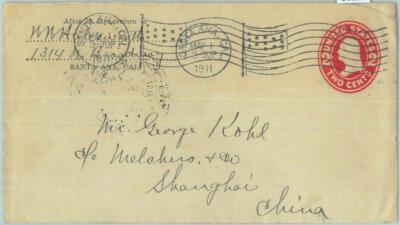 After 10 days return to
1314 N.
SANTA ANA, CAL.
SANTA ANA, CAL.
MAY 1
1911
UNITED STATES
TWO CENTS
Mr. George Kohl
c/o Melchers, & Co
Shanghai
China